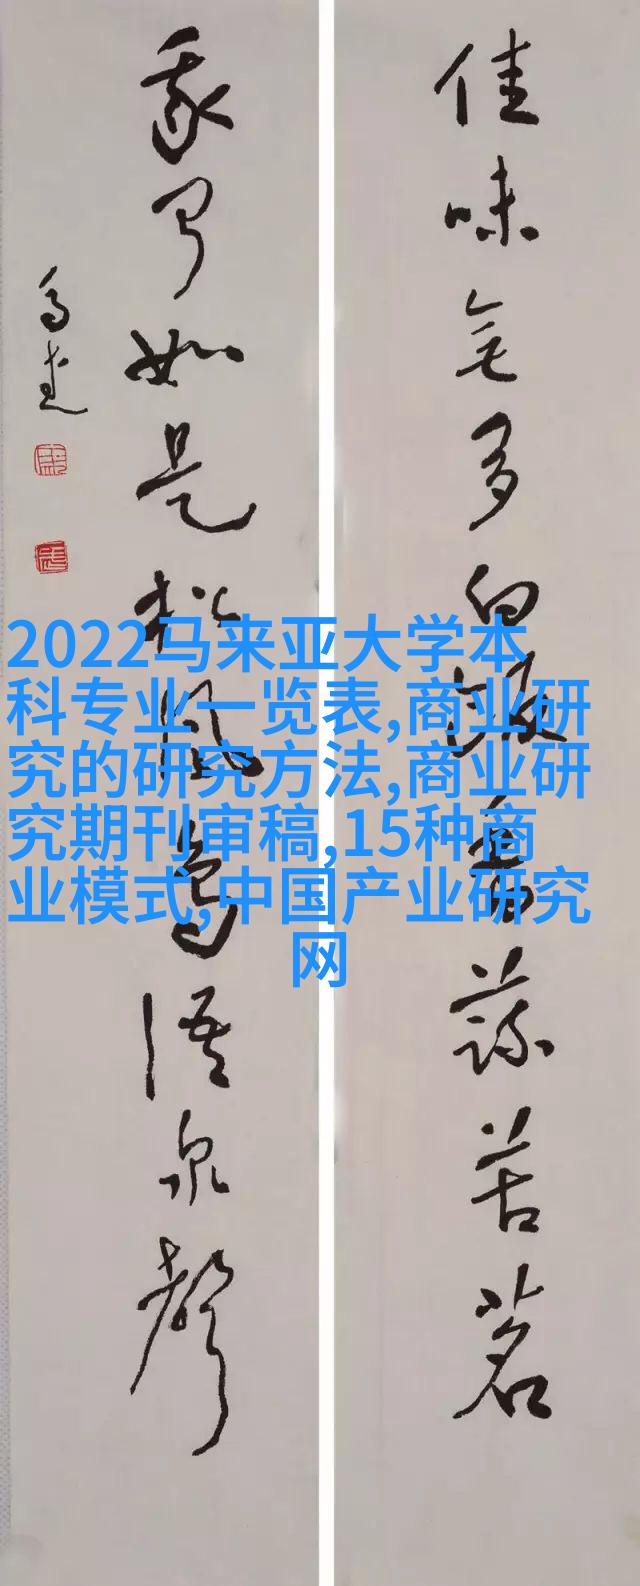 佳味無多白飯香蔬苦茗
我聞如是松風鳥語泉聲
2022马来亚大学本
科专业一览表,商业研
究的研究方法,商业研
究期刊审稿,15种商
业模式,中国产业研究
网